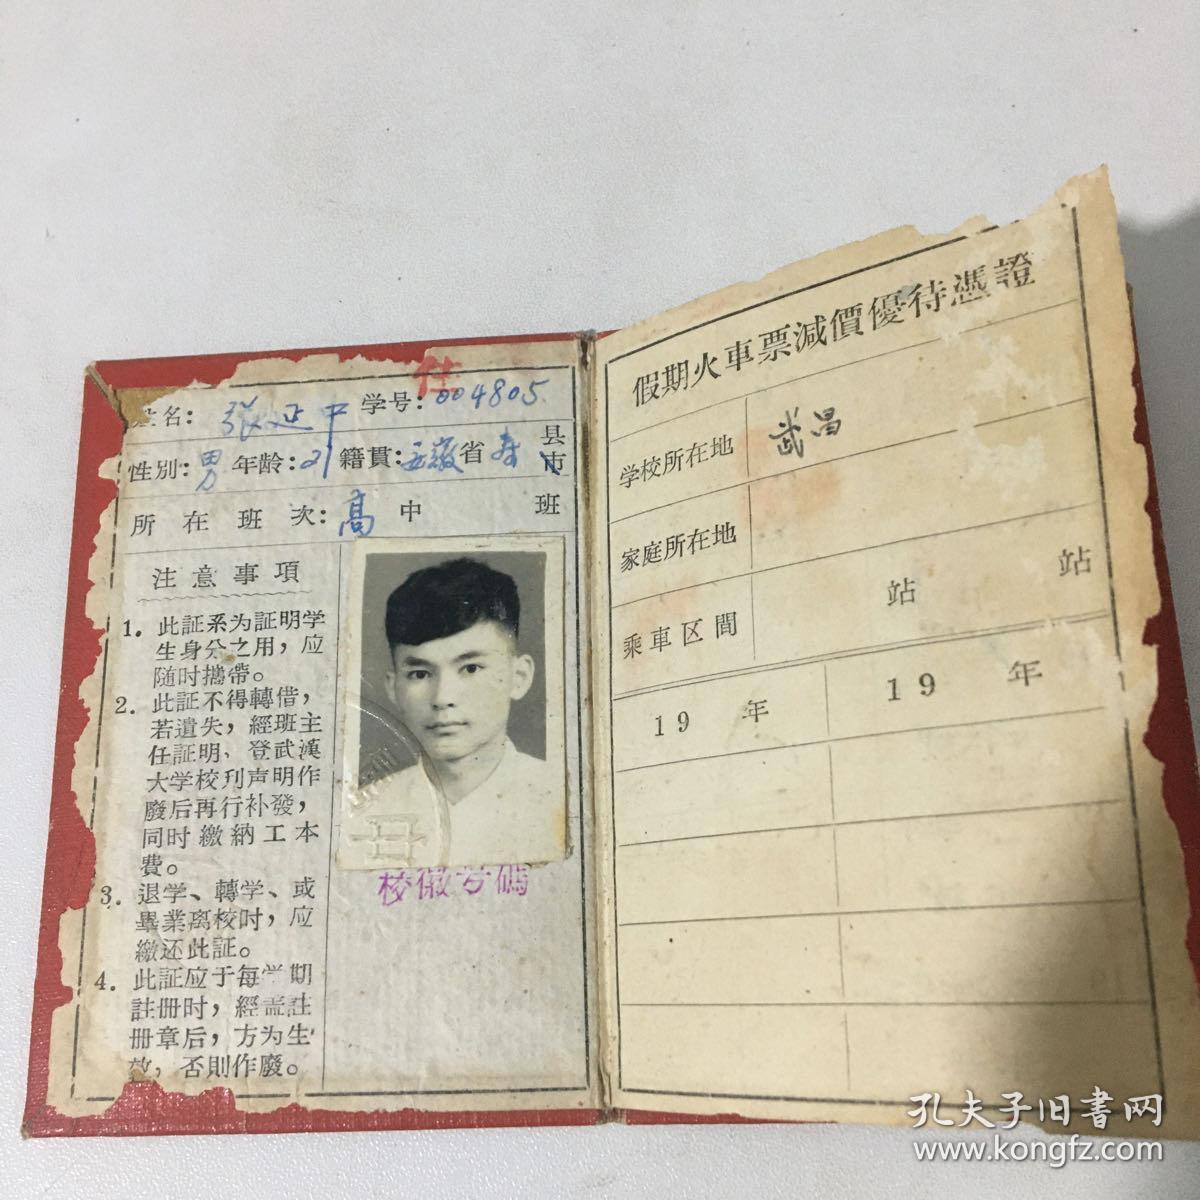 住
姓名: 张延中 学号: 004805
性别: 男 年龄: 21 籍貫: 安徽省 寿 县市
所在班次: 高中 班
注意事項
1. 此証系为証明学
生身分之用，应
随时攜帶。
2. 此証不得轉借，
若遺失，經班主
任証明、登武漢
大学校刊声明作
廢后再行补發，
同时繳納工本
費。
3. 退学、轉学、或
畢業离校时，应
繳还此証。
4. 此証应于每学期
註册时，經盖註
册章后，方为生
效，否則作廢。
校徽号碼
假期火車票減價優待憑證
学校所在地 武昌
家庭所在地
乘車区間 站 站
19 年 19 年
孔夫子旧书网
www.kongfz.com